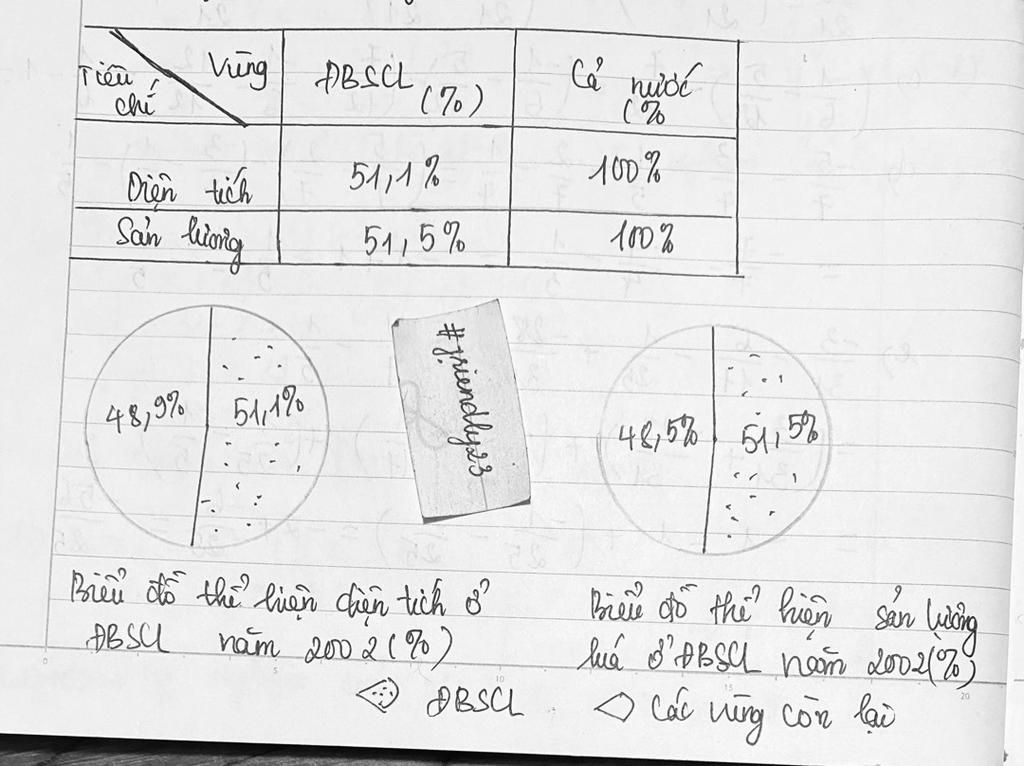 Vùng
Tiêu chí
ĐBSCL (%)
Cả nước (%
Diện tích
51,1%
100%
Sản lương
51,5%
100%
48,9%
51,1%
#friendly23
48,5%
51,5%
Biểu đồ thể hiện diện tích ở
ĐBSCL năm 2002 (%)
Biểu đồ thể hiện sản lượng
luá ở ĐBSCL năm 2002 (%)
ĐBSCL
Các vùng còn lại
0
5
10
15
20